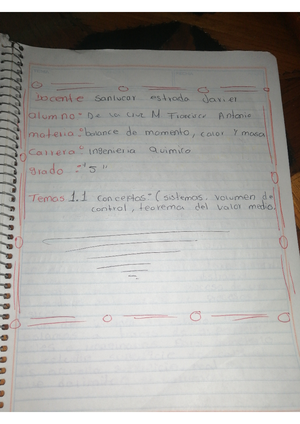 Docente Sanlucar estrada Javier
Alumno: De La Cruz M Francisco Antonio
materia: balance de momento, calor y masa
Carrera: Ingenieria Quimica
grado : "5"
Temas 1.1 Conceptos" (sistemas, volumen de
control, teorema del valor medio.